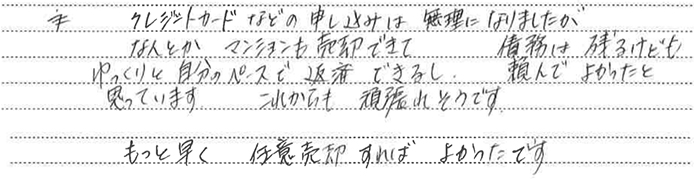 クレジットカードなどの申し込みは 無理になりましたが
なんとか マンションも売却できて 債務は 残るけども
ゆっくりと自分のペースで 返済 できるし、 頼んで よかったと
思っています これからも 頑張れそうです
もっと早く 任意売却すれば よかったです